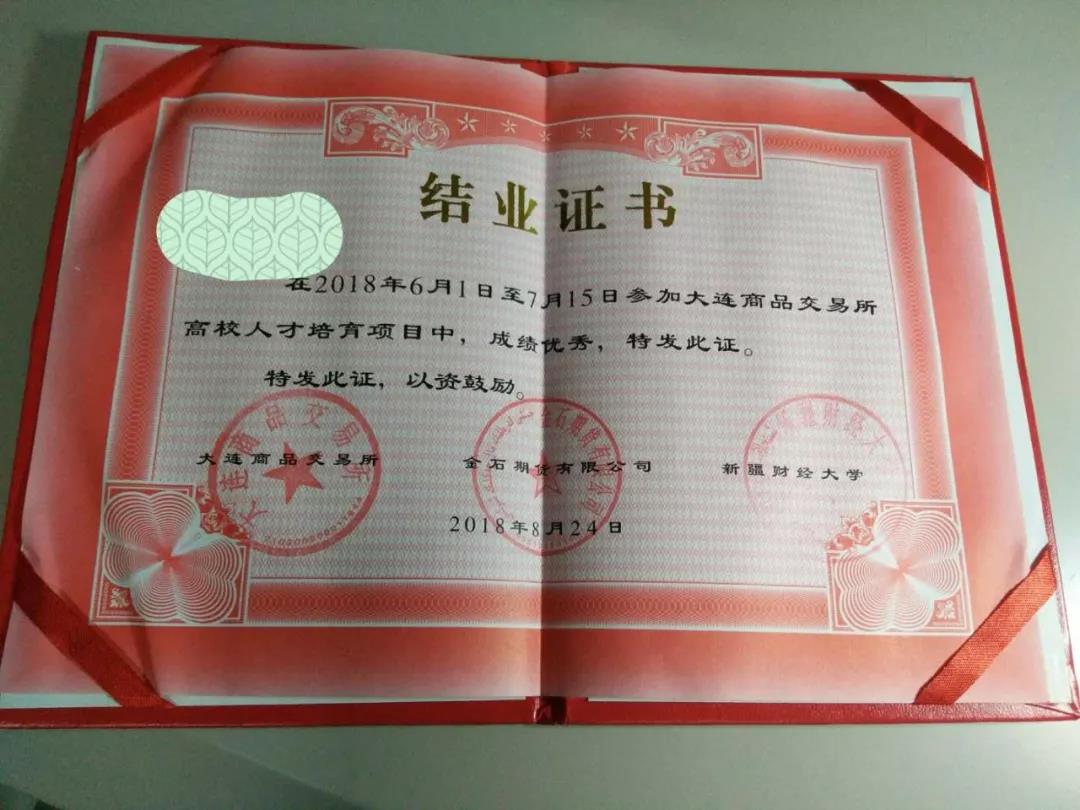 结业证书
在2018年6月1日至7月15日参加大连商品交易所
高校人才培育项目中，成绩优秀，特发此证。
特发此证，以资鼓励。
大连商品交易所
金石期货有限公司
新疆财经大学
2018年8月24日
大连商品交易所
金石期货有限公司
新疆财经大